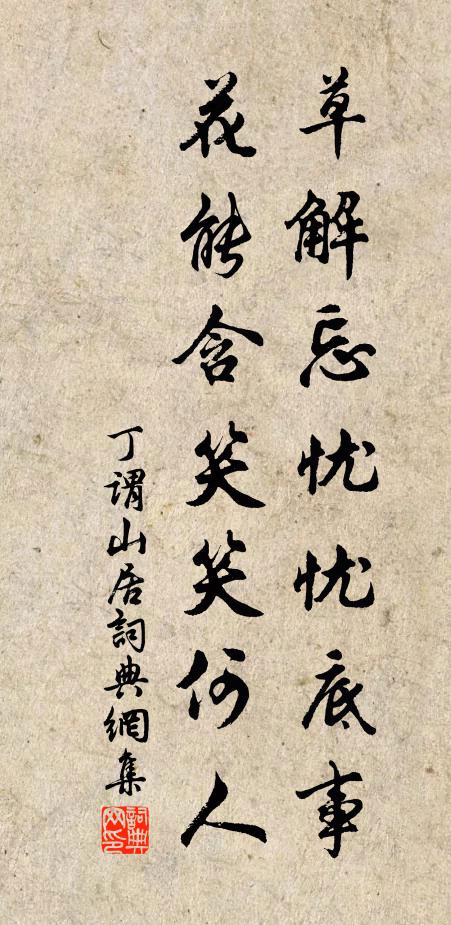 草解忘忧忧底事
花能含笑笑何人
丁謂山居詞典網集
詞典网印